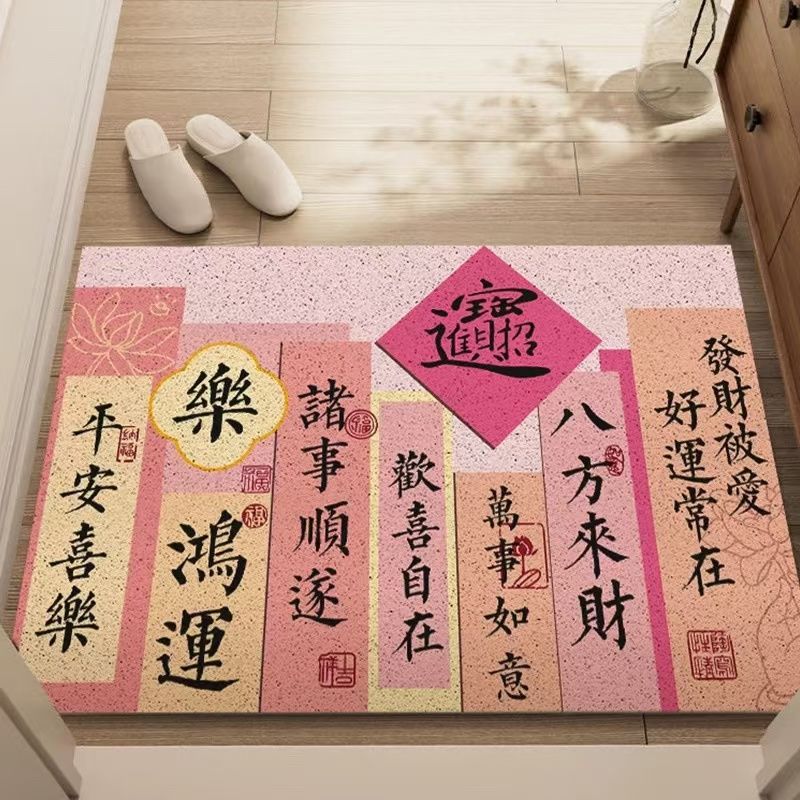 平安喜樂
納福
樂
鴻運
福
諸事順遂
福
吉祥
歡喜自在
招財進寶
萬事如意
八方來財
發財被愛
好運常在